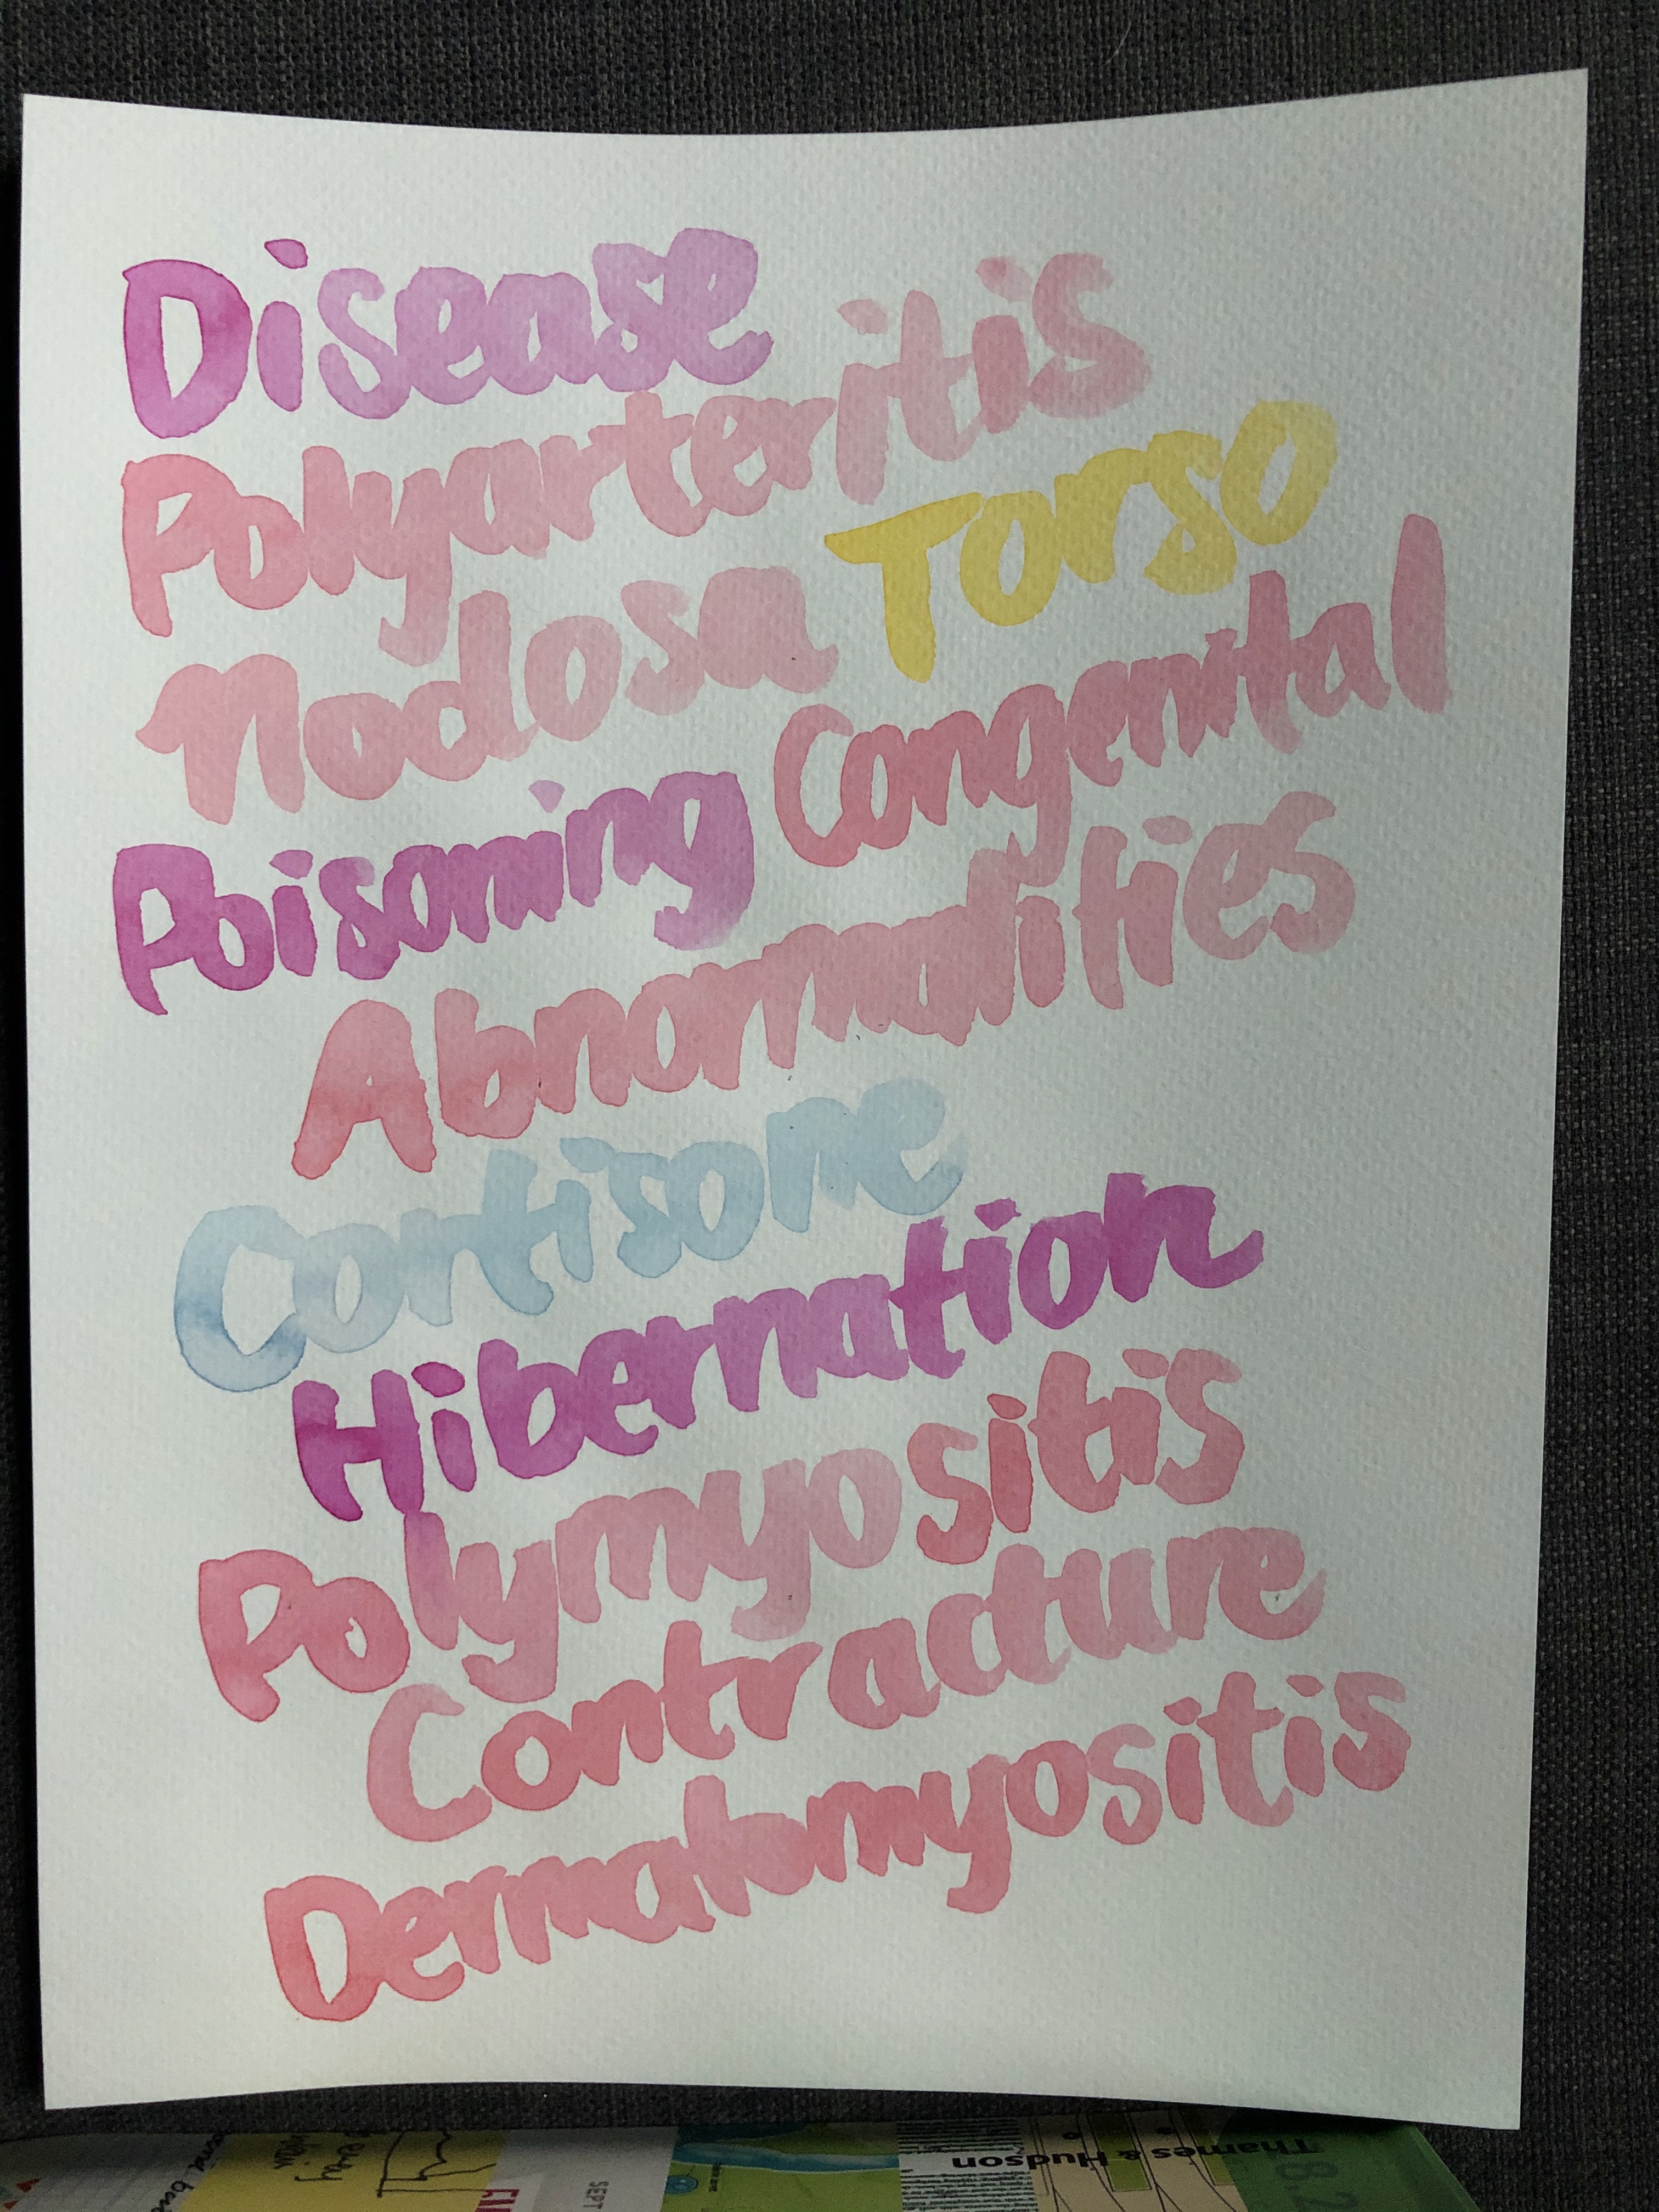 Disease
Polyarteritis
Nodosa Torso
Poisoning Congenital
Abnormalities
Cortisone
Hibernation
Polymyositis
Contracture
Dermatomyositis
Thames & Hudson
SEPT